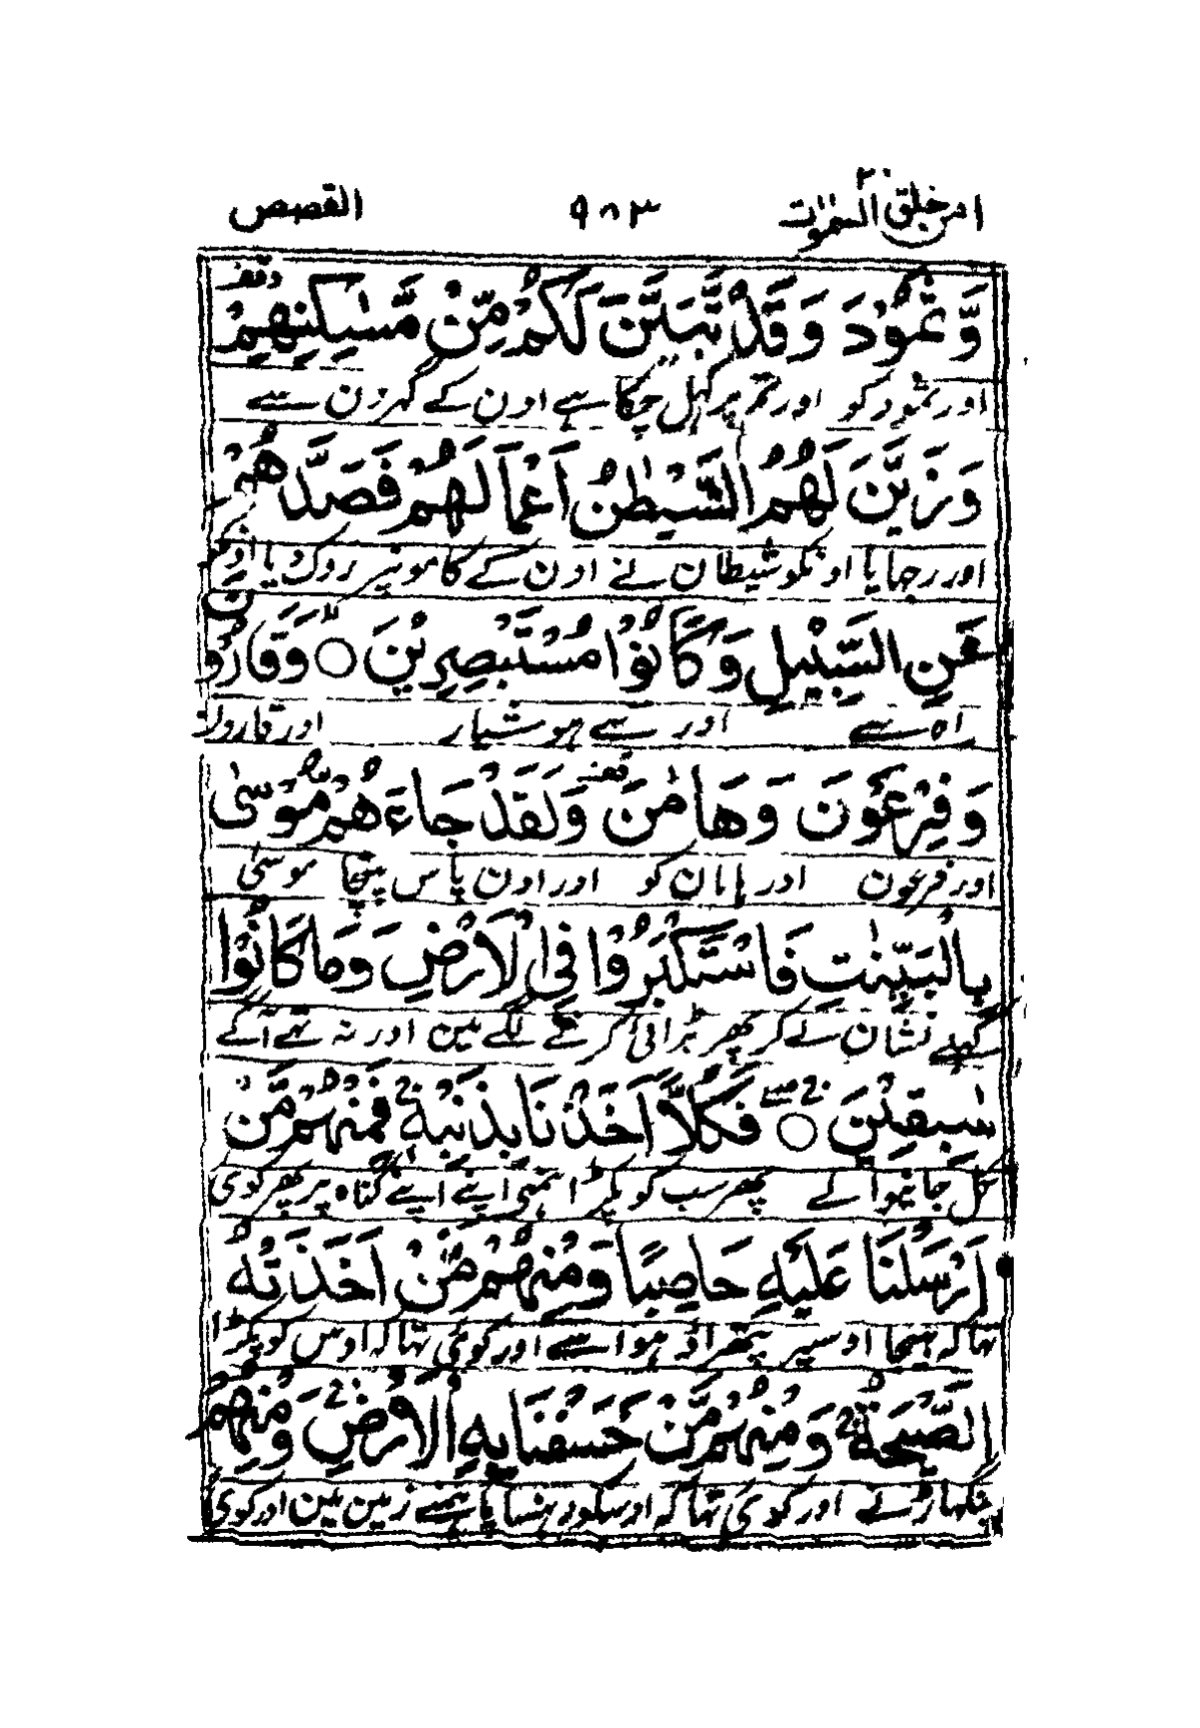 امن خلق السموات ٢٠ ٩٨٣ القصص
وَّثَمُوْدَا۟ وَقَدْ تَّبَيَّنَ لَكُمْ مِّنْ مَّسٰكِنِهِمْ وقفة
اور ثمود کو اور تم پر کہل چکا ہے اون کے گہرون سے
وَزَيَّنَ لَهُمُ الشَّيْطٰنُ اَعْمَالَهُمْ فَصَدَّهُمْ
اور رجہایا اونکو شیطان نے اون کے کامونپر روک دیا اونکو
عَنِ السَّبِيْلِ وَكَانُوْا مُسْتَبْصِرِيْنَ ○ وَقَارُوْنَ
راہ سے اور تہے ہوشیار اور قارون
وَفِرْعَوْنَ وَهَامٰنَ وقفة وَلَقَدْ جَاءَهُمْ مُّوْسٰى
اور فرعون اور ہامان کو اور اون پاس پہنچا موسیٰ
بِالْبَيِّنٰتِ فَاسْتَكْبَرُوْا فِى الْاَرْضِ وَمَا كَانُوْا
کہلے نشان لے کر پھر بڑائی کرنے لگے مین اور نہ تہے آگے
سٰبِقِيْنَ ○ فَكُلًّا اَخَذْنَا بِذَنْبِهٖ فَمِنْهُمْ مَّنْ
نکل جانیوالے پھر سب کو پکڑا ہمنے اپنے اپنے گناہ پر پھر کوئی
اَرْسَلْنَا عَلَيْهِ حَاصِبًا وَمِنْهُمْ مَّنْ اَخَذَتْهُ
تہا کہ بہیجا اوسپر پتھراؤ ہوا سے اور کوئی تہا کہ اوس کو پکڑا
الصَّيْحَةُ وَمِنْهُمْ مَّنْ خَسَفْنَا بِهِ الْاَرْضَ وَمِنْهُمْ
چنگہاڑ نے اور کوئی تہا کہ اوسکو دہنسایا ہمنے زمین مین اور کوئی